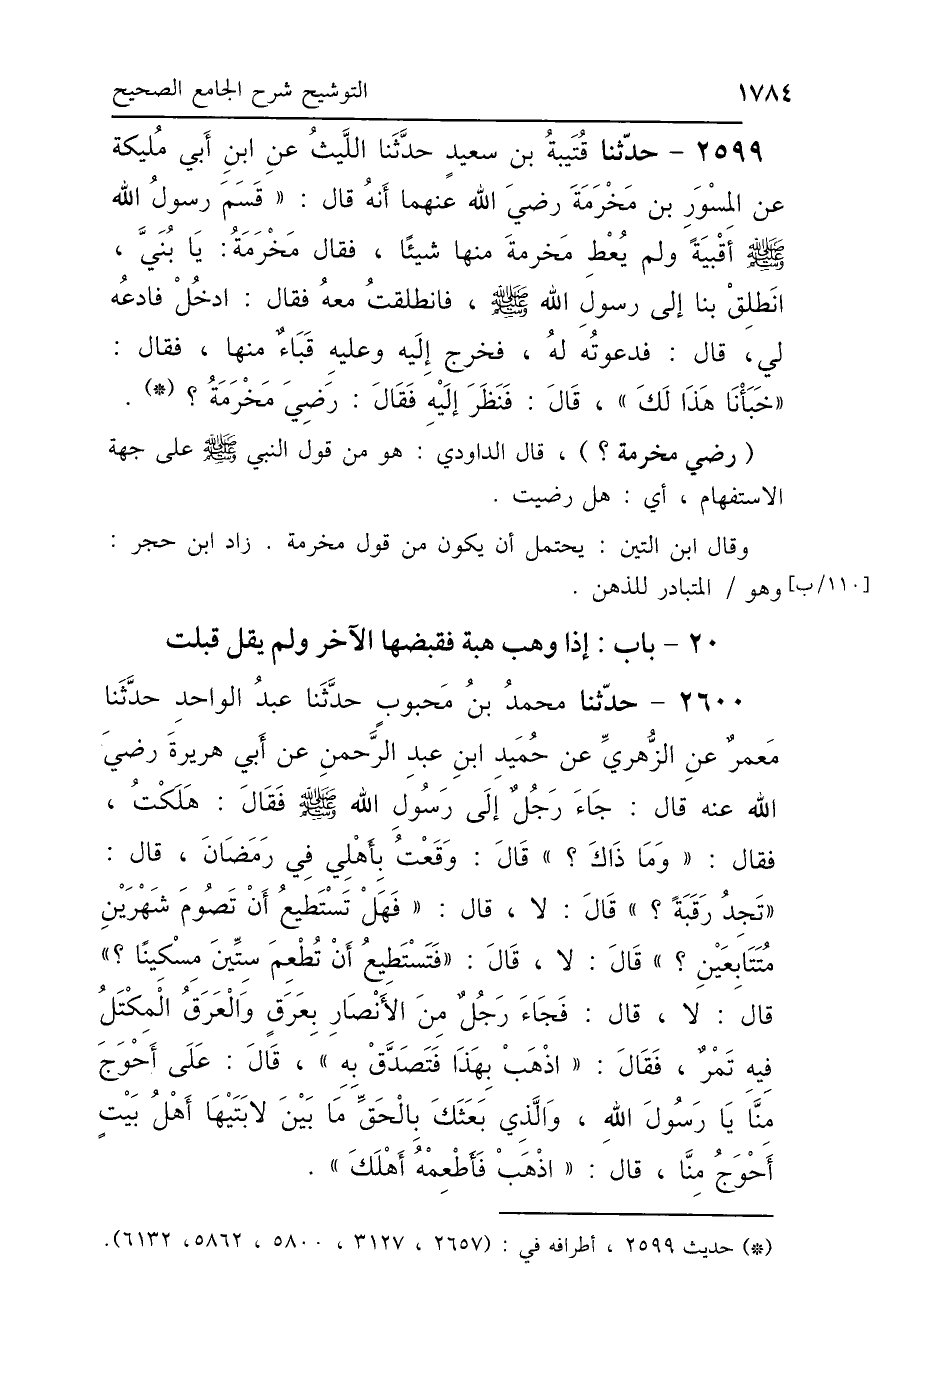 ١٧٨٤ التوشيح شرح الجامع الصحيح
٢٥٩٩ - حدّثنا قُتَيبةُ بن سعيدٍ حدَّثَنا اللَّيثُ عنِ ابنِ أَبي مُليكة
عن المِسْوَرِ بن مَخْرَمَةَ رضيَ الله عنهما أنهُ قال : « قَسَمَ رسولُ الله
ﷺ أقْبِيَةً ولم يُعْطِ مَخرمةَ منها شيئًا ، فقال مَخْرَمَةُ: يَا بُنَيَّ ،
انَطلِقْ بنا إلى رسولِ الله ﷺ ، فانطلقتُ معهُ فقال : ادخُلْ فادعُه
لي، قال : فدعوتُه لهُ ، فخرج إلَيه وعليهِ قَبَاءٌ منها ، فقال :
«خَبَأْنَا هَذَا لَكَ » ، قَالَ : فَنَظَرَ إلَيْهِ فَقَالَ : رَضِيَ مَخْرَمَةُ ؟ (*) .
( رضي مخرمة ؟ ) ، قال الداودي : هو من قول النبي ﷺ على جهة
الاستفهام ، أي : هل رضيت .
وقال ابن التين : يحتمل أن يكون من قول مخرمة . زاد ابن حجر :
[١١٠/ب] وهو / المتبادر للذهن .
٢٠ - باب : إذا وهب هبة فقبضها الآخر ولم يقل قبلت
٢٦٠٠ - حدّثنا محمدُ بنُ مَحبوبٍ حدَّثَنا عبدُ الواحدِ حدَّثَنا
مَعمرٌ عنِ الزُّهريِّ عن حُمَيدِ ابنِ عبدِ الرَّحمنِ عن أبي هريرةَ رضيَ
الله عنه قال : جَاءَ رَجُلٌ إلَى رَسُولِ الله ﷺ فَقَالَ : هَلَكْتُ ،
فقال : « وَمَا ذَاكَ ؟ » قَالَ : وَقَعْتُ بِأَهْلِي فِي رَمَضَانَ ، قال :
«تَجِدُ رَقَبَةً ؟ » قَالَ : لا ، قال : « فَهَلْ تَسْتَطِيعُ أَنْ تَصُومَ شَهْرَيْنِ
مُتَتَابِعَيْنِ ؟ » قَالَ : لا ، قَالَ : «فَتَسْتَطِيعُ أَنْ تُطْعِمَ سِتِّينَ مِسْكِينًا ؟»
قال : لا ، قال : فَجَاءَ رَجُلٌ مِنَ الأَنْصَارِ بِعَرَقٍ وَالْعَرَقُ الْمِكْتَلُ
فِيهِ تَمْرٌ ، فَقَالَ : « اذْهَبْ بِهَذَا فَتَصَدَّقْ بِهِ » ، قَالَ : عَلَى أَحْوَجَ
مِنَّا يَا رَسُولَ اللهِ ، وَالَّذِي بَعَثَكَ بِالْحَقِّ مَا بَيْنَ لابَتَيْهَا أَهْلُ بَيْتٍ
أَحْوَجُ مِنَّا ، قال : « اذْهَبْ فَأَطْعِمْهُ أَهْلَكَ » .
(*) حديث ٢٥٩٩ ، أطرافه في : (٢٦٥٧ ، ٣١٢٧ ، ٥٨٠٠ ، ٥٨٦٢، ٦١٣٢).